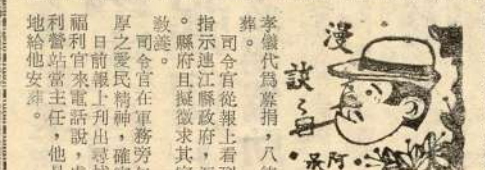 漫談
吳阿
孝儀代為募捐，八
葬。
司令官從報上看到
指示連江縣政府，
。縣府且擬徵求其
敎養。
司令官在軍務旁
厚之愛民精神，確
日前報上列出尋
福利官來電話說，
利營站當主任，他
地給他安葬。